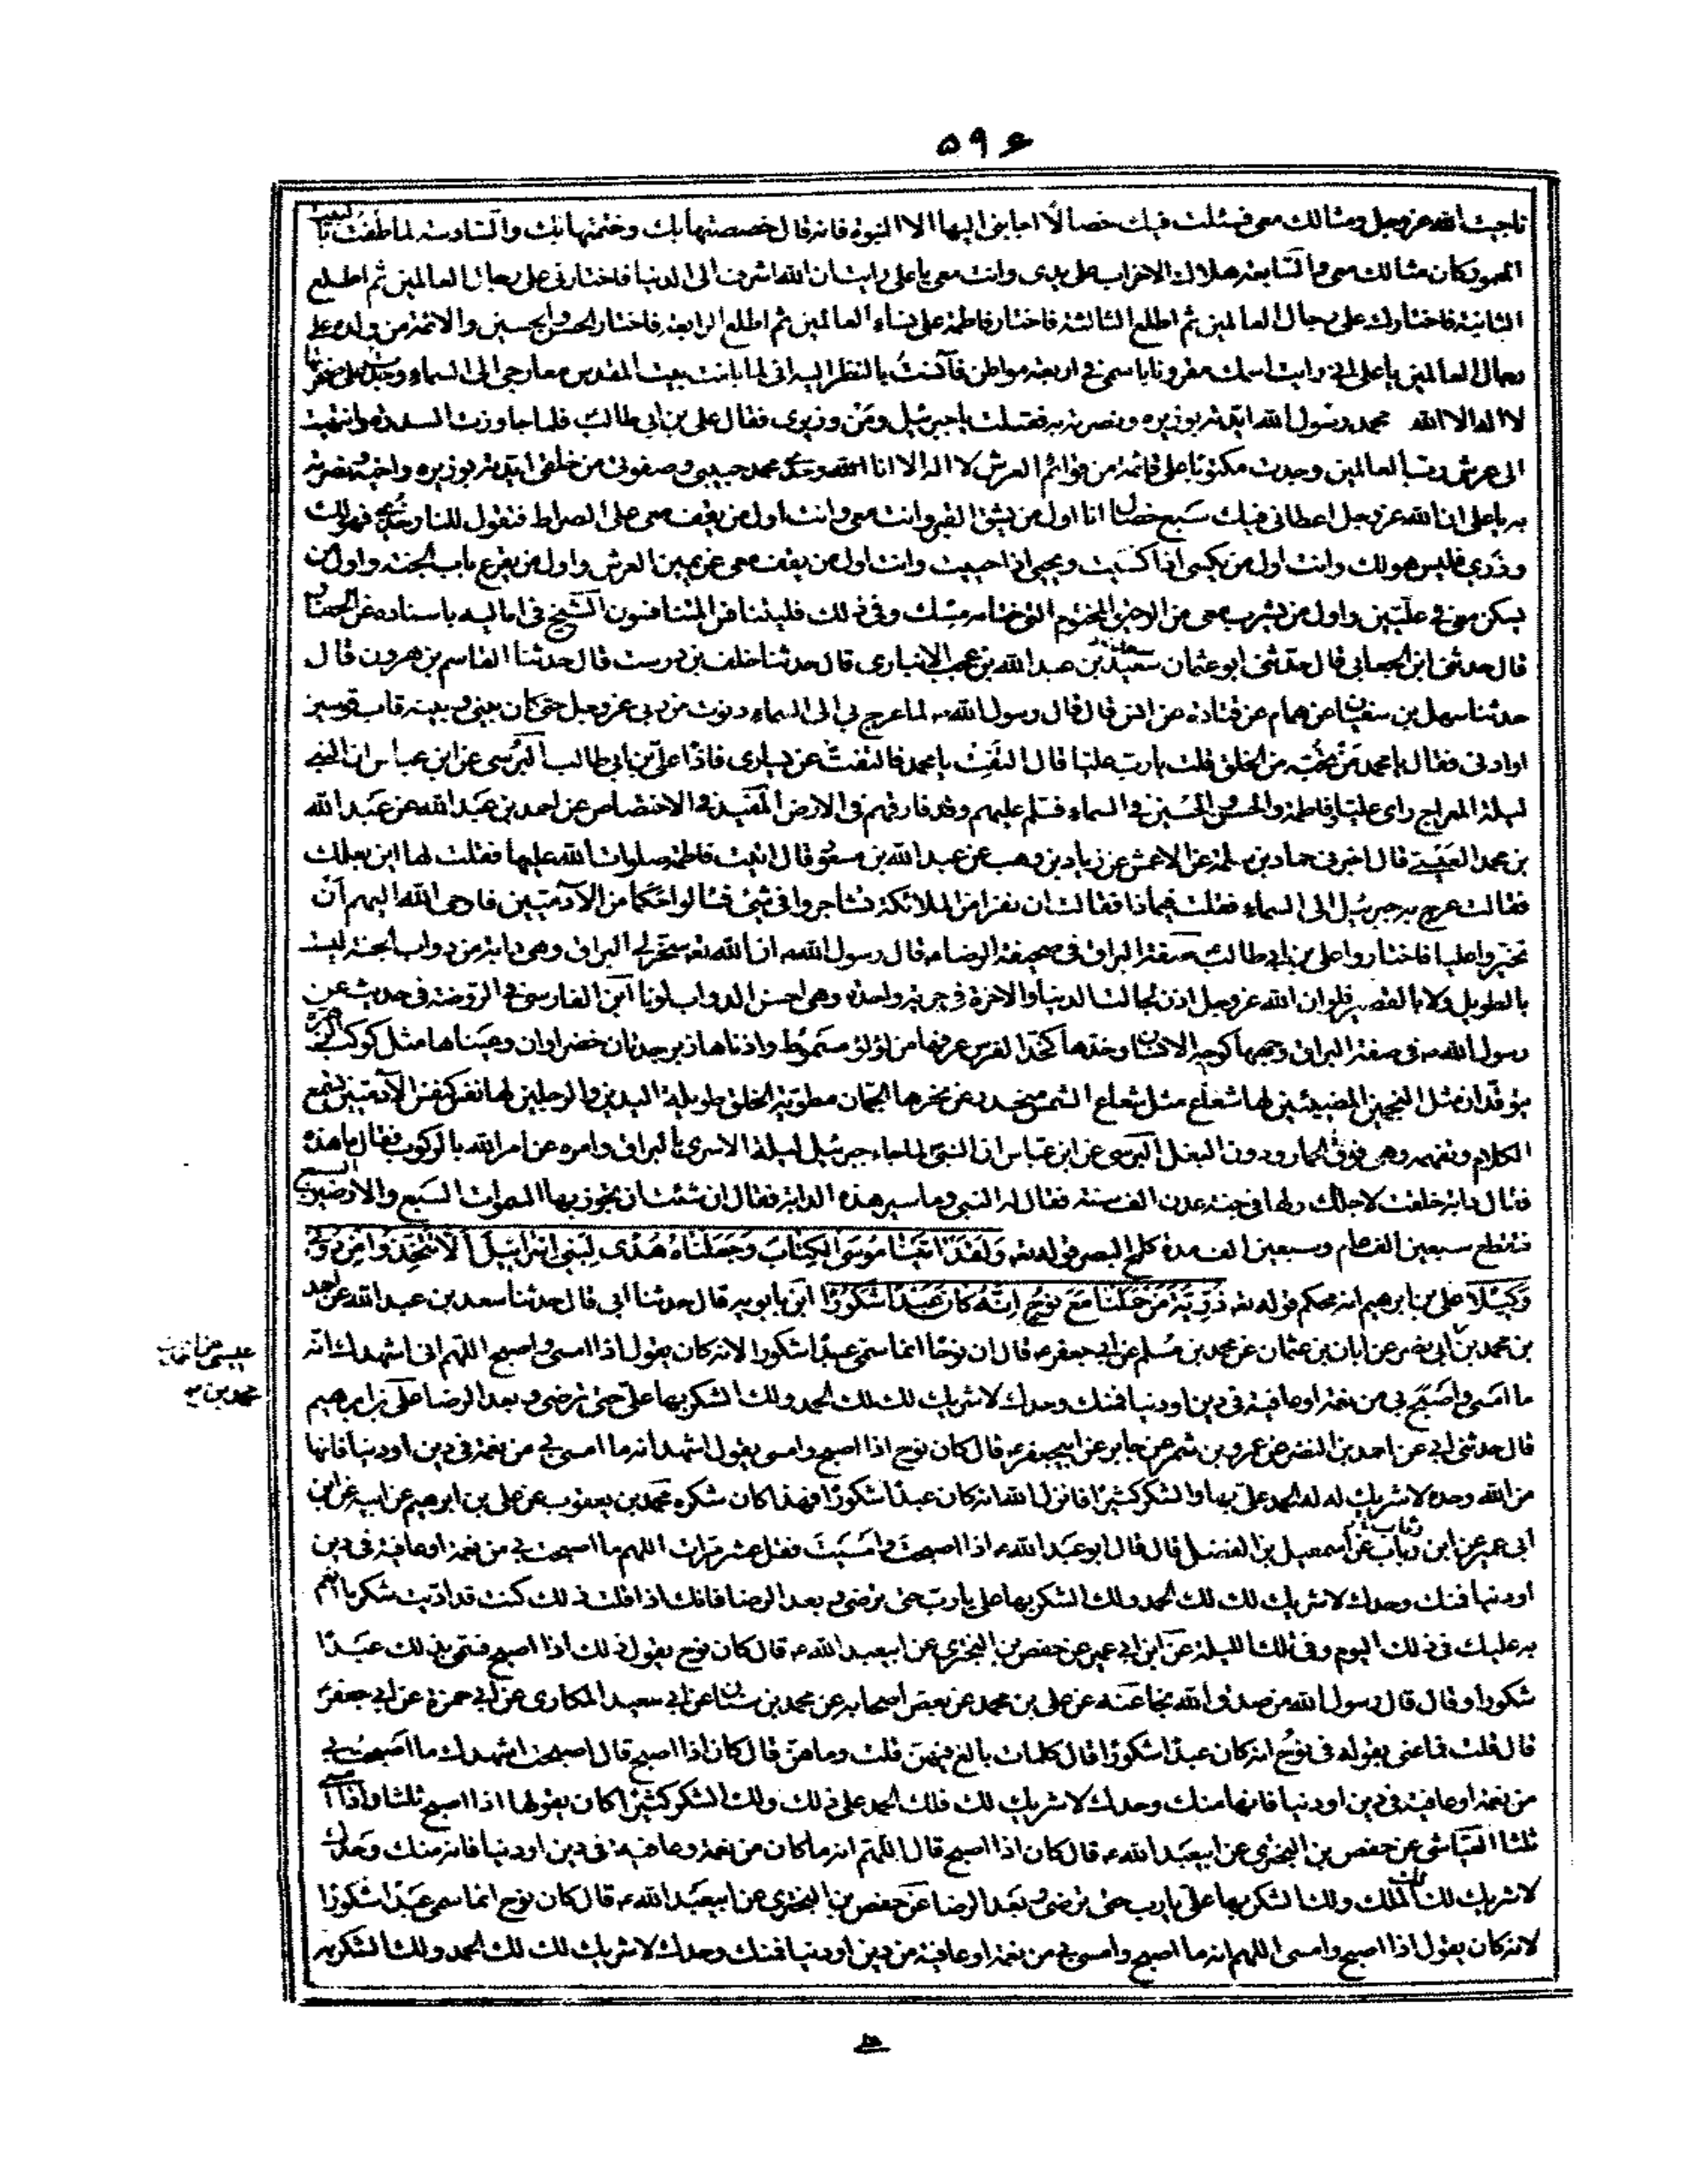 ۵۹۶
ناجيت الله عزوجل ومثالك معى فسئلت فيك خصالًا اجابنى اليها الا النبوة فانه قال خصصتها بك وختمتها بك والسادسة لما طفت
المعمور كان مثالك معى والسابعة هلاك الاحزاب على يدى وانت معى يا على ان الله اشرف الى الدنيا فاختارنى على رجال العالمين ثم اطلع
الثانية فاختارك على رجال العالمين ثم اطلع الثالثة فاختار فاطمة على نساء العالمين ثم اطلع الرابعة فاختار الحسن والحسين والائمة من ولده على
رجال العالمين يا على انى رايت اسمك مقرونا باسمى فى اربعة مواطن فآنست بالنظر اليه انى لما بلغت بيت المقدس معارجى الى السماء وجدت على صخرتها
لا اله الا الله محمد رسول الله ايدته بوزيره ونصرته به فقلت يا جبرئيل ومن وزيرى فقال على بن ابى طالب فلما جاوزت السدرة وانتهيت
الى عرش رب العالمين وجدت مكتوبا على قائمة من قوائم العرش لا اله الا انا الله وحدى محمد حبيبى وصفوتى من خلقى ايدته بوزيره واخيه ونصرته
به يا على ان الله عزوجل اعطانى فيك سبع خصال انا اول من يشق القبر وانت معى وانت اول من يقف معى على الصراط فتقول للنار خذى هذا فهو لك
وذرى فليس هو لك وانت اول من يكسى اذا كسيت ويحيى اذا حييت وانت اول من يقف معى عن يمين العرش واول من يقرع باب الجنة واول من
يسكن معى فى عليين واول من يشرب معى من الرحيق المختوم الذى ختامه مسك وفى ذلك فليتنافس المتنافسون الشيخ فى اماليه باسناده عن الحفار
قال حدثنى ابن الجعابى قال حدثنى ابو عثمان سعيد بن عبد الله بن عجب الانبارى قال حدثنا خلف بن درست قال حدثنا القاسم بن هرون قال
حدثنا سهل بن سفين عن همام عن قتادة عن انس قال قال رسول الله ص لما عرج بى الى السماء دنوت من ربى عزوجل حتى كان بينى وبينه قاب قوسين
او ادنى فقال يا محمد من تحب من الخلق قلت يا رب عليا قال التفت يا محمد فالتفت عن يسارى فاذا على بن ابى طالب البرسى عن ابن عباس ان النبى
ليلة المعراج راى عليا وفاطمة والحسن والحسين فى السماء فسلم عليهم وقد فارقهم فى الارض المفيد فى الاختصاص عن احمد بن عبد الله عن عبد الله
بن محمد العبسى قال اخبرنى حماد بن سلمة عن الاعمش عن زياد بن وهب عن عبد الله بن مسعود قال اتيت فاطمة صلوات الله عليها فقلت لها اين بعلك
فقالت عرج به جبرئيل الى السماء فقلت فيما ذا فقالت ان نفرا من الملائكة تشاجروا فى شئ فسالوا حكما من الآدميين فاوحى الله اليهم ان
تخيروا عليا فاختاروا على بن ابى طالب صفة البراق فى صحيفة الرضا ع قال رسول الله ص ان الله تعه سخر لى البراق وهى دابة من دواب الجنة ليست
بالطويل ولا بالقصير فلو ان الله عزوجل اذن لها لجالت الدنيا والاخرة فى جرية واحدة وهى احسن الدواب لونا ابن الفارسى فى الروضة فى حديث عن
رسول الله ص فى صفة البراق وجهها كوجه الانسان وخدها كخد الفرس عرفها من لؤلؤ مسموط واذناها زبرجدتان خضراوان وعيناها مثل كوكب الزهرة
يتوقدان مثل النجمين المضيئين لها شعاع مثل شعاع الشمس ينحدر عن نحرها الجمان مطوية الخلق طويلة اليدين والرجلين لها نفس كنفس الآدميين تسمع
الكلام وتفهمه وهى فوق الحمار ودون البغل البرسى عن ابن عباس ان النبى لما جاءه جبرئيل ليلة الاسرى بالبراق وامره عن امر الله بالركوب فقال ما هذه
فقال دابة خلقت لاجلك ولها فى جنة عدن الف سنة فقال له النبى وما سير هذه الدابة فقال ان شئت ان تجوز بها السموات السبع والارضين السبع
فتقطع سبعين الف عام وسبعين الف مدة كلمح البصر قوله تعه وَلَقَدْ اتَيْنَا مُوسَى الْكِتَابَ وَجَعَلْنَاهُ هُدًى لِبَنِى اِسْرَائيلَ اَلَّا تَتَّخِذُوا مِنْ دُونِى
وَكيلًا على بن ابرهيم انه محكم قوله تعه ذُرِّيَّةَ مَنْ حَمَلْنَا مَعَ نُوحٍ اِنَّهُ كَانَ عَبْدًا شَكُورًا ابن بابويه قال حدثنا ابى قال حدثنا سعد بن عبد الله عن احمد
بن محمد بن ابى نصر عن ابان بن عثمان عن محمد بن مسلم عن ابى جعفر ع قال ان نوحا انما سمى عبدا شكورا لانه كان يقول اذا امسى واصبح اللهم انى اشهدك انه
ما امسى واصبح بى من نعمة او عافية فى دين او دنيا فمنك وحدك لا شريك لك لك الحمد ولك الشكر بها على حتى ترضى وبعد الرضا على بن ابرهيم
قال حدثنى ابى عن احمد بن النضر عن عمرو بن شمر عن جابر عن ابيجعفر ع قال كان نوح اذا اصبح وامسى يقول اشهد انه ما امسى بى من نعمة فى دين او دنيا فانها
من الله وحده لا شريك له له الحمد على بها والشكر كثيرا فانزل الله انه كان عبدا شكورا فهذا كان شكره محمد بن يعقوب عن على بن ابرهيم عن ابيه عن ابن
ابى عمير عن ابن رئاب عن اسمعيل بن الفضل قال قال ابو عبد الله ع اذا اصبحت وامسيت فقل عشر مرات اللهم ما اصبحت بى من نعمة او عافية فى دين
او دنيا فمنك وحدك لا شريك لك لك الحمد ولك الشكر بها على يا رب حتى ترضى وبعد الرضا فانك اذا قلت ذلك كنت قد اديت شكر ما انعم
به عليك فى ذلك اليوم وفى تلك الليلة عن ابن ابى عمير عن حفص بن البخترى عن ابيعبد الله ع قال كان نوح يقول ذلك اذا اصبح فسمى بذلك عبدا
شكورا وقال قال رسول الله من صدق الله نجا عنه عن على بن محمد عن بعض اصحابه عن محمد بن سنان عن ابى سعيد المكارى عن ابى حمزة عن ابى جعفر
قال قلت فما عنى بقوله فى نوح انه كان عبدا شكورا قال كلمات بالغ فيهن قلت وما هن قال كان اذا اصبح قال اصبحت اشهدك ما اصبحت بى
من نعمة او عافية فى دين او دنيا فانها منك وحدك لا شريك لك فلك الحمد على ذلك ولك الشكر كثيرا كان يقولها اذا اصبح ثلثا واذا امسى
ثلثا العياشى عن حفص بن البخترى عن ابيعبد الله ع قال كان اذا اصبح قال اللهم انه ما كان من نعمة وعافية فى دين او دنيا فانه منك وحدك
لا شريك لك لك الملك ولك الشكر بها على يا رب حتى ترضى وبعد الرضا عن حفص بن البخترى عن ابيعبد الله ع قال كان نوح انما سمى عبدا شكورا
لانه كان يقول اذا اصبح وامسى اللهم انه ما اصبح وامسى بى من نعمة او عافية من دين او دنيا فمنك وحدك لا شريك لك لك الحمد ولك الشكر به